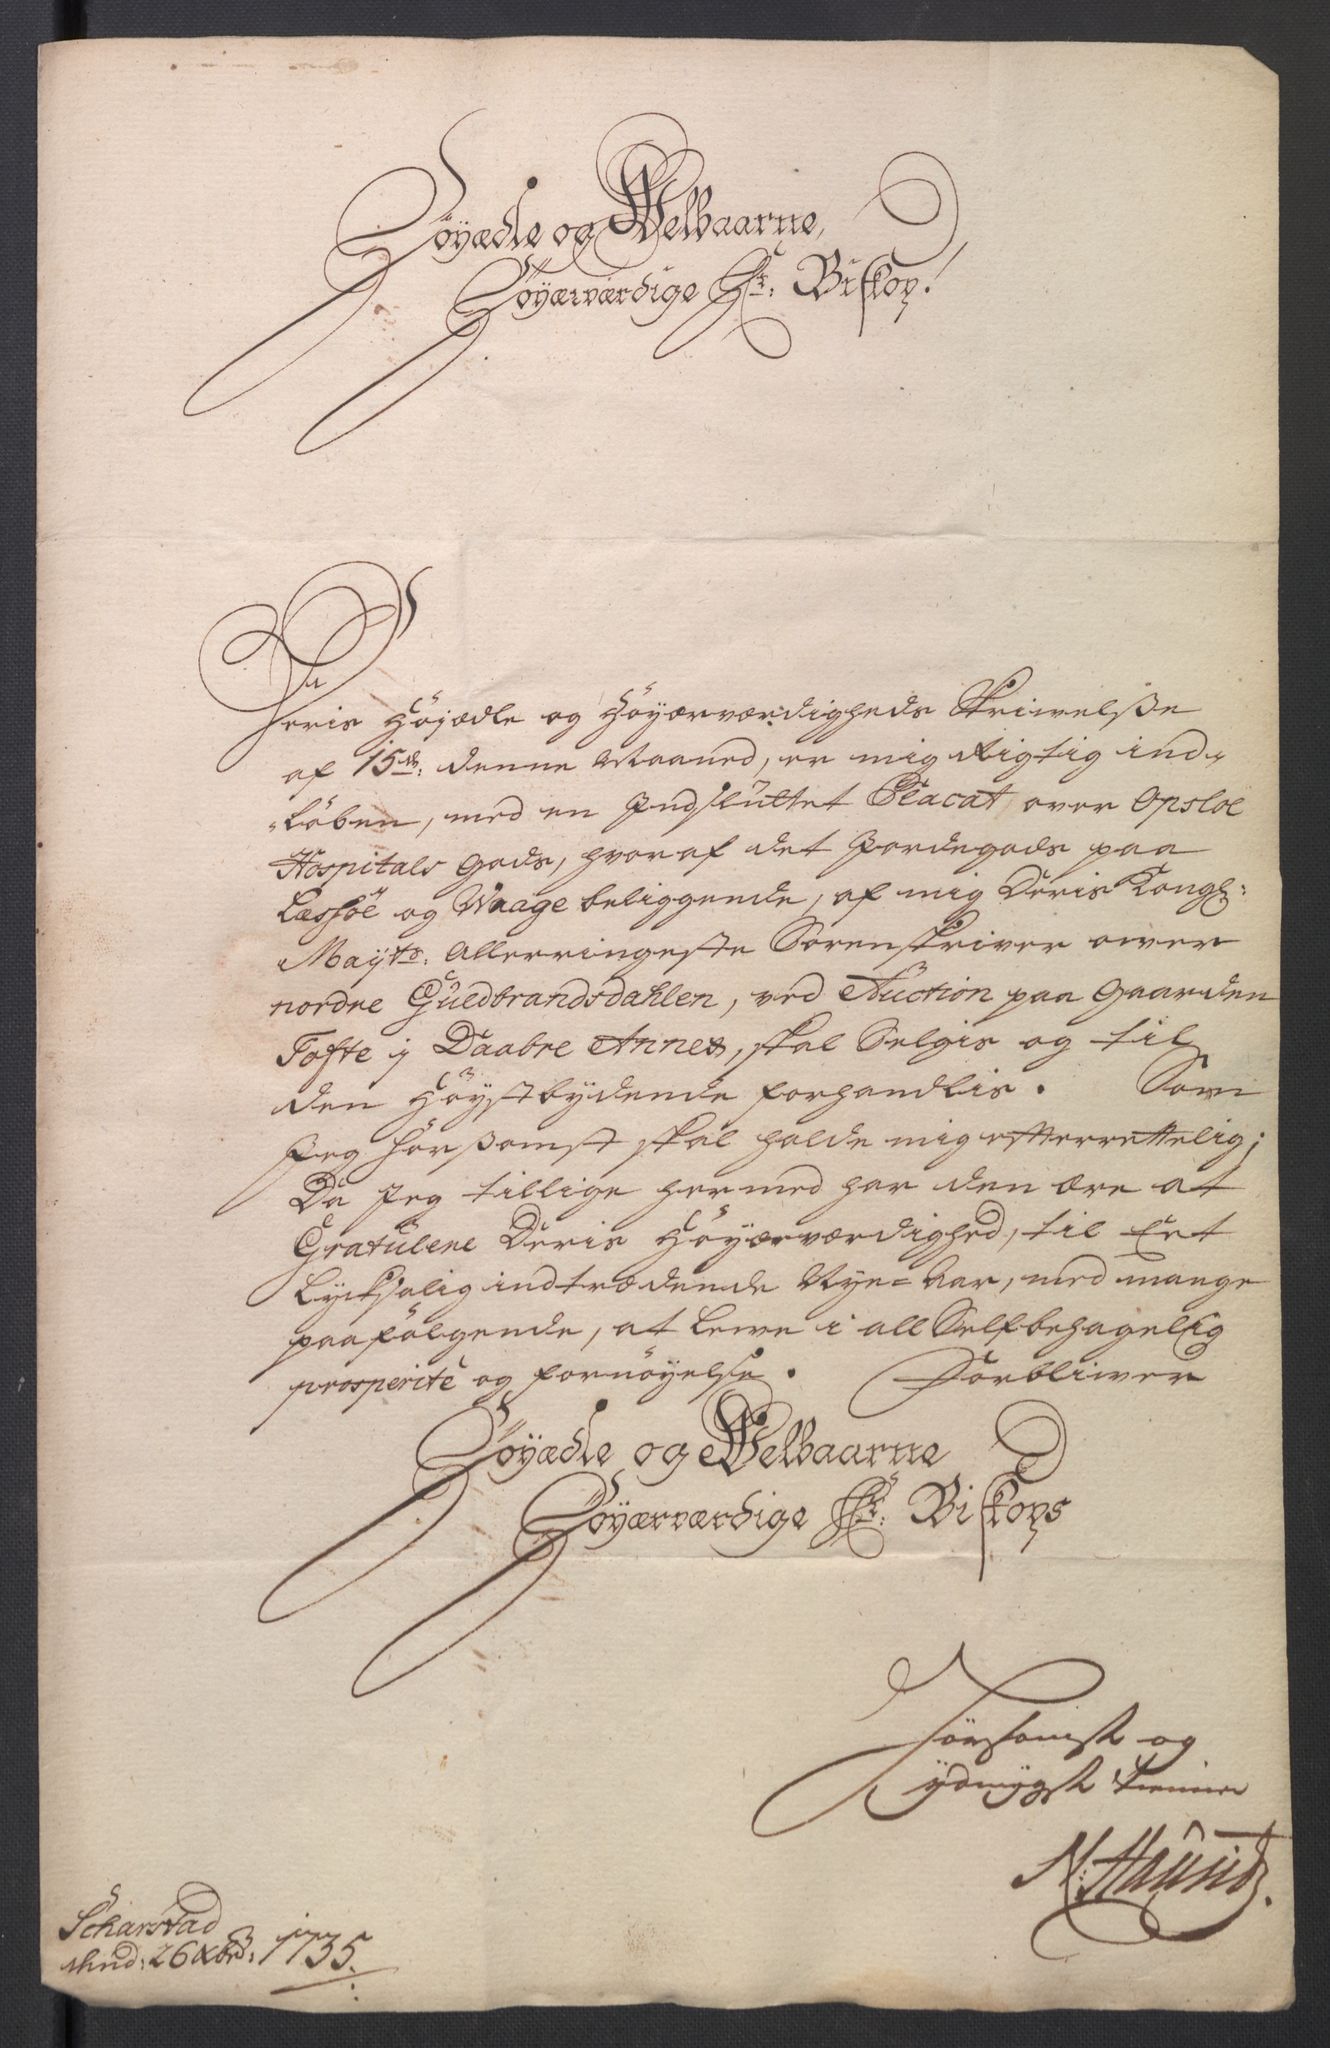 Høyædle og Welbaarne,
Høyærværdige Hr: Biskop!
Deris Høyædle og Høyærværdigheds Skrivelße
af 15de: denne Maaned, er mig Rigtig ind-
-løben, med en Indsluttet Placat over Opsloe
Hospitals Gods, hvoraf det Jordegods paa
Læssøe og Waage beliggende, af mig Deris Kongl:
Mayts: Allerringeste Sorenskriver over
nordre Guedbrandsdahlen, ved Auction paa Gaarden
Tofte i Daabre Annex, skal Selgis og til
den Høystbydende forhandlis. Som
Jeg hørsomst skal holde mig efterrettelig;
Da Jeg tillige hermed har den ære at
Gratulere Deris Høyærværdighed, til Eet
Lycksalig indtrædende Nye=Aar, med mange
paafølgende, at Leve i all Selfbehagelig
prosperitè og fornøyelse. Forbliver
Høyædle og Welbaarne
Høyærværdige Hr: Biskops
hørsomst og
ydmygst tiener
N:
Scharstad
dend: 26 Xbr: 1735.